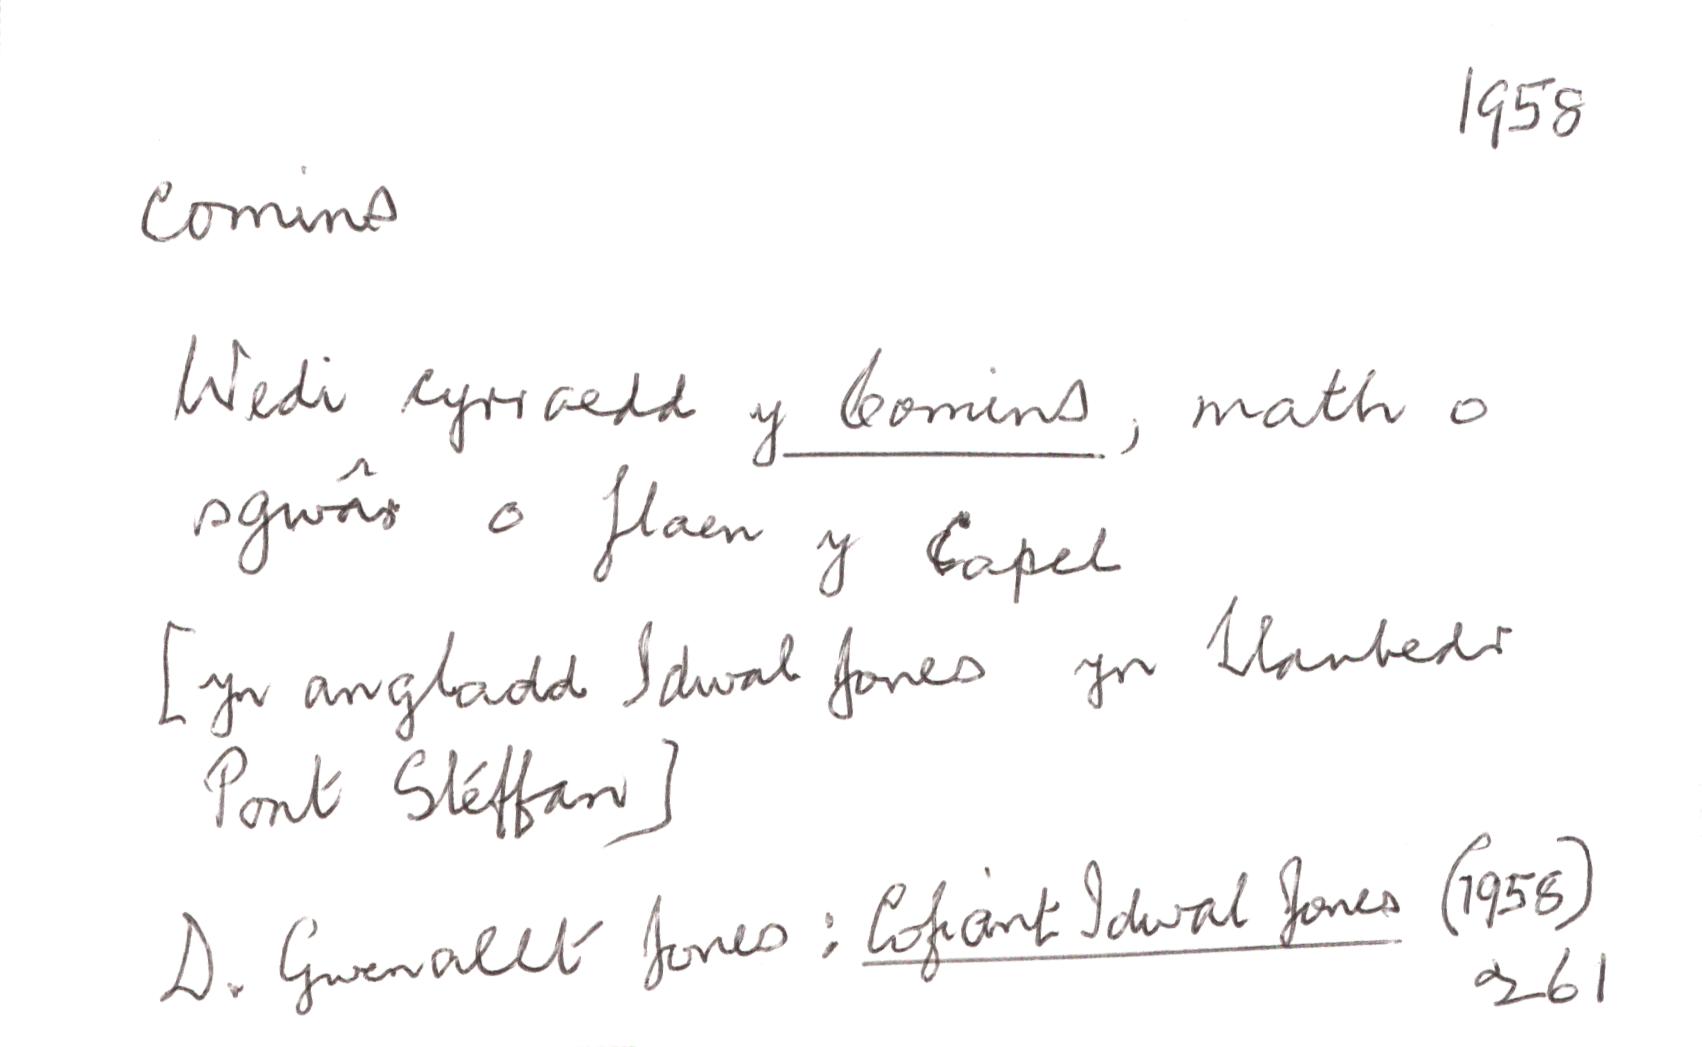 1958
Comins
Wedi cyrraedd y Comins, math o
sgwâr o flaen y Capel
[yn angladd Idwal Jones yn Llanbedr
Pont Steffan]
D. Gwenallt Jones: Cofiant Idwal Jones (1958)
261